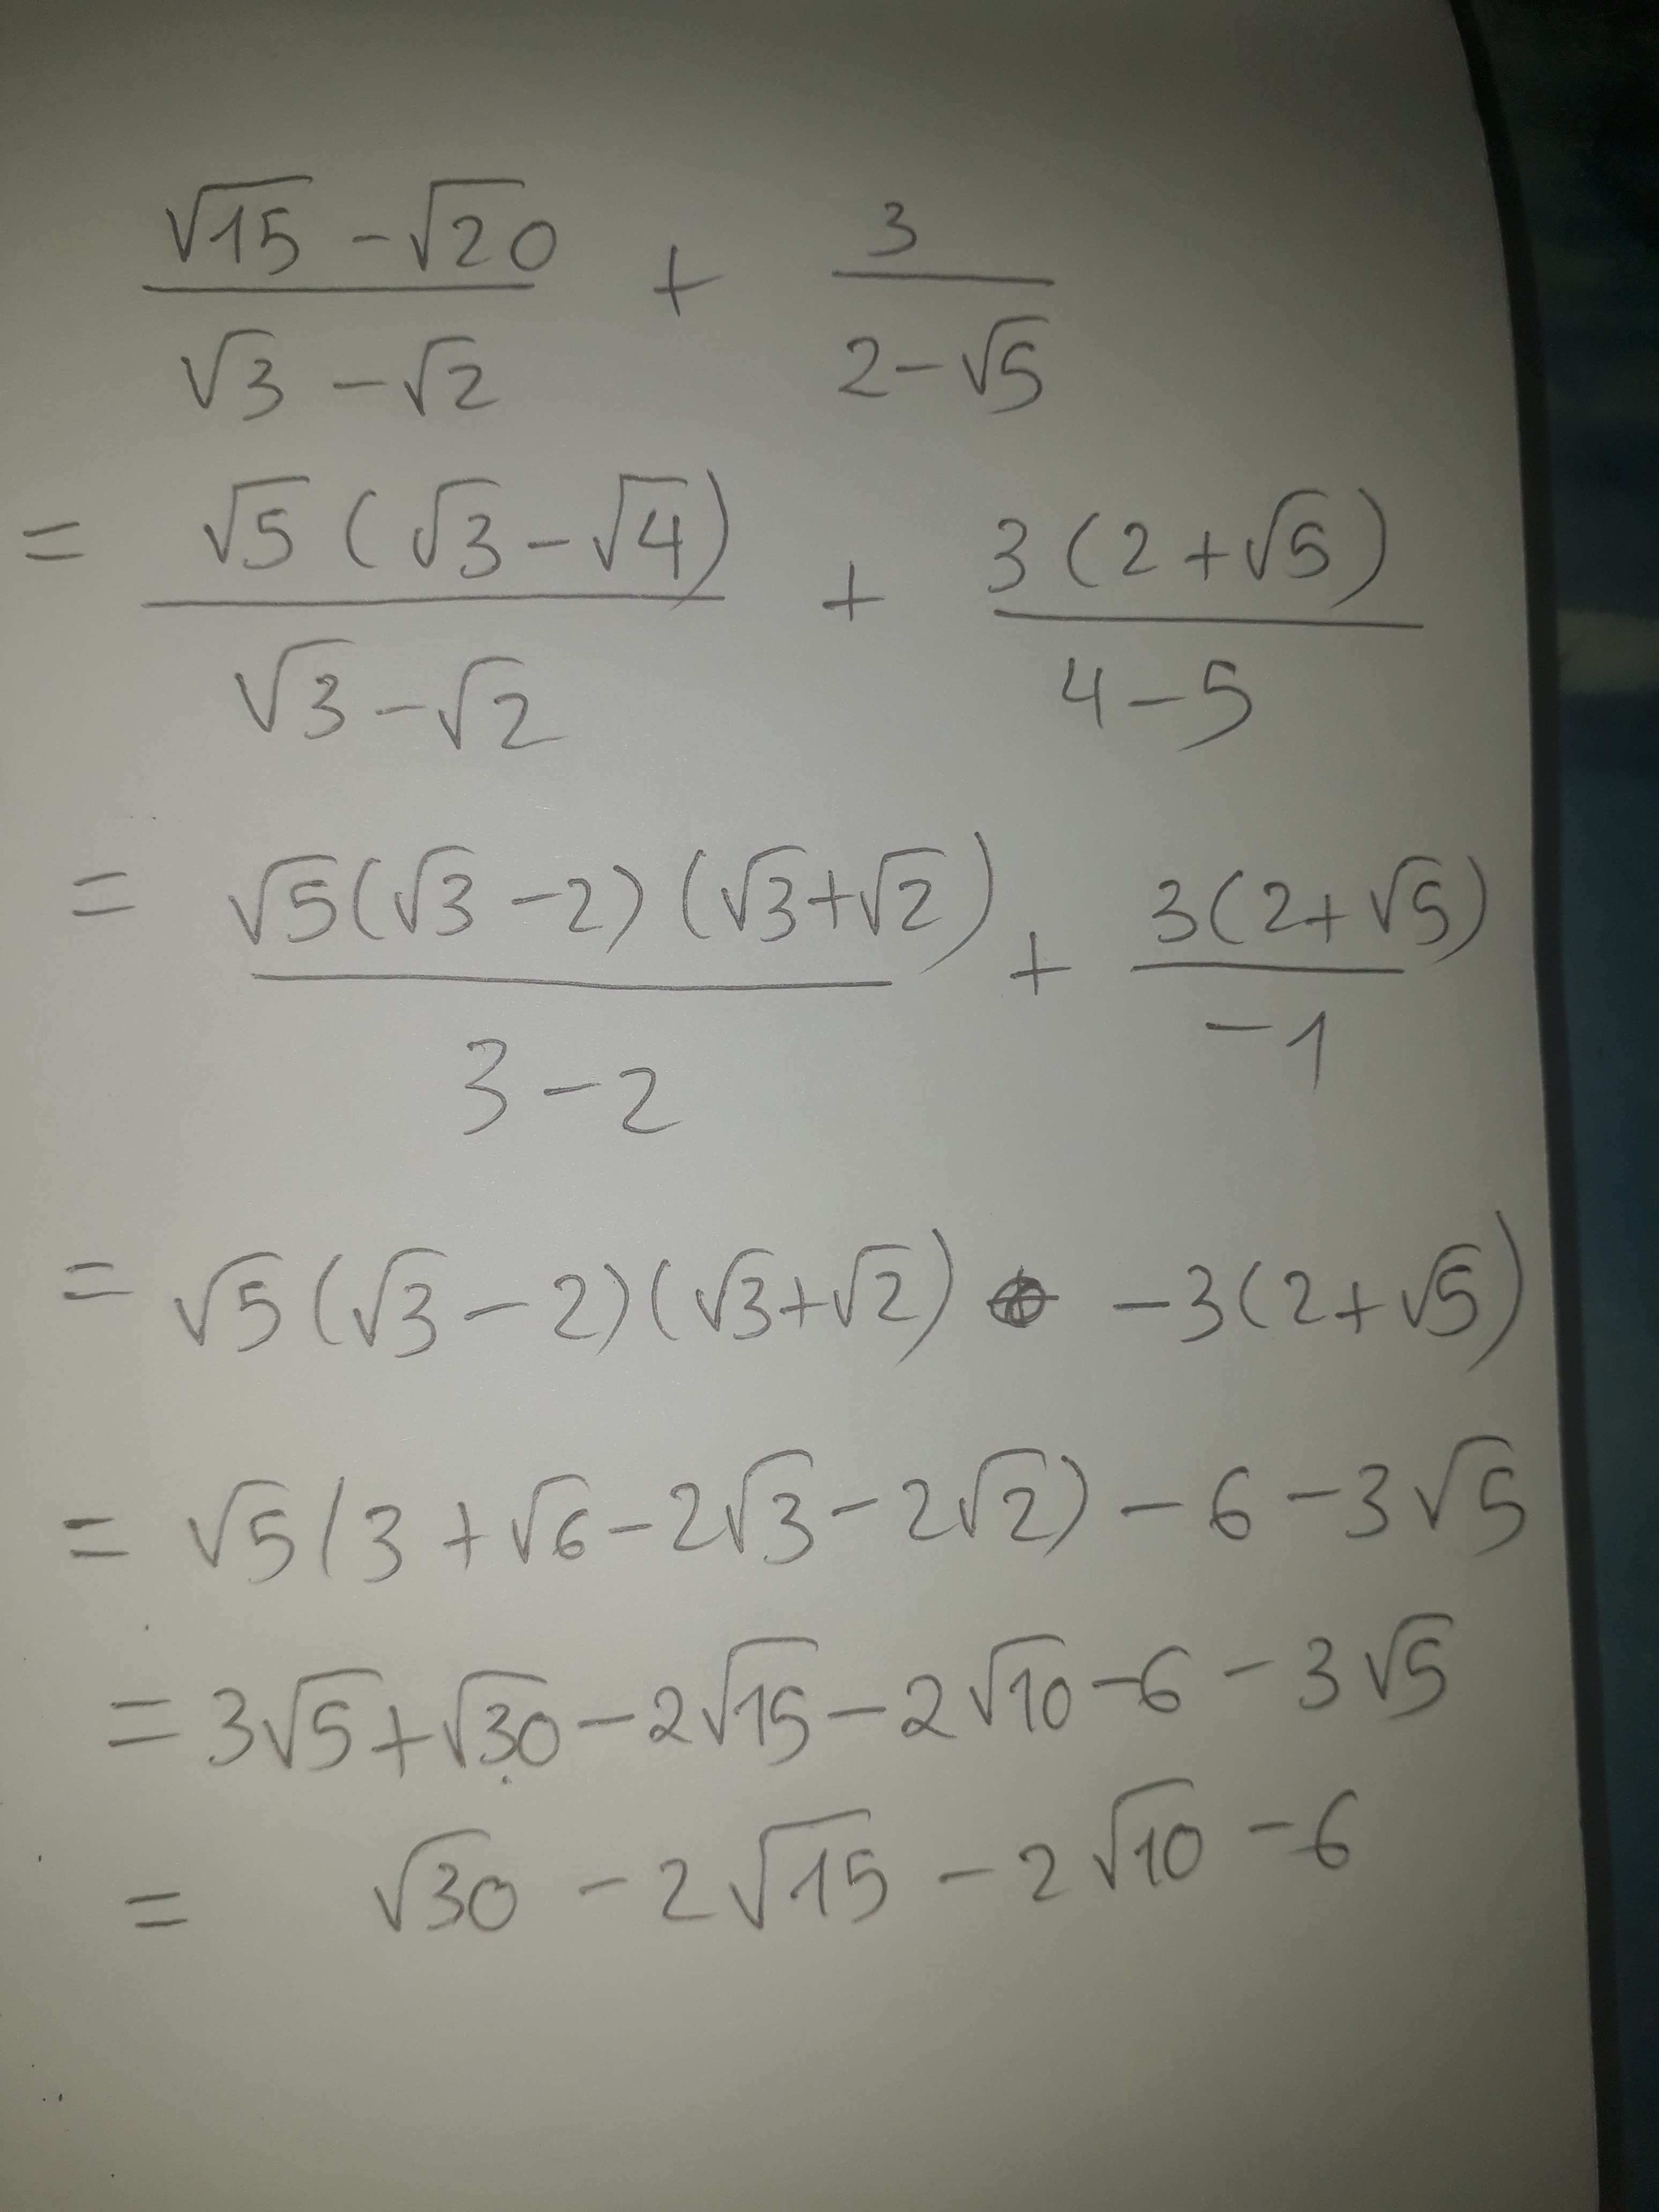 (√15 - √20)/(√3 - √2) + 3/(2 - √5)
= √5(√3 - √4)/(√3 - √2) + 3(2 + √5)/(4 - 5)
= √5(√3 - 2)(√3 + √2)/(3 - 2) + 3(2 + √5)/(-1)
= √5(√3 - 2)(√3 + √2) - 3(2 + √5)
= √5(3 + √6 - 2√3 - 2√2) - 6 - 3√5
= 3√5 + √30 - 2√15 - 2√10 - 6 - 3√5
= √30 - 2√15 - 2√10 - 6